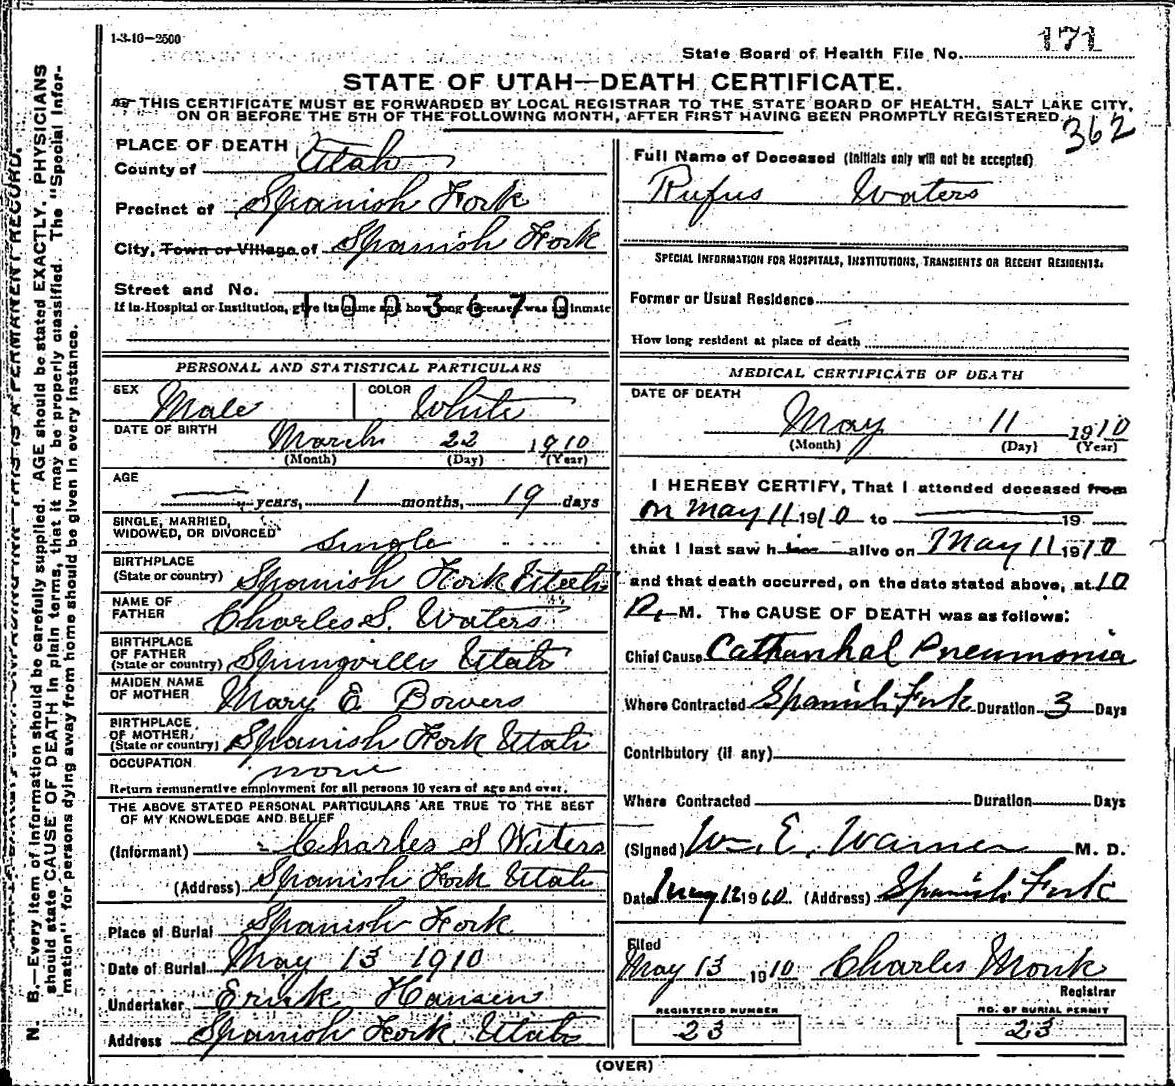 1-3-10—2500
State Board of Health File No. 171
STATE OF UTAH—DEATH CERTIFICATE.
THIS CERTIFICATE MUST BE FORWARDED BY LOCAL REGISTRAR TO THE STATE BOARD OF HEALTH, SALT LAKE CITY,
ON OR BEFORE THE 5TH OF THE FOLLOWING MONTH, AFTER FIRST HAVING BEEN PROMPTLY REGISTERED.
362
PLACE OF DEATH
County of Utah
Precinct of Spanish Fork
City, Town or Village of Spanish Fork
Street and No.
1003670
If in Hospital or Institution, give its name and how long deceased was an inmate
PERSONAL AND STATISTICAL PARTICULARS
SEX Male COLOR White
DATE OF BIRTH March 22 1910
(Month) (Day) (Year)
AGE
— years, 1 months, 19 days
SINGLE, MARRIED,
WIDOWED, OR DIVORCED Single
BIRTHPLACE
(State or country) Spanish Fork Utah
NAME OF
FATHER Charles S. Waters
BIRTHPLACE
OF FATHER
(State or country) Springville Utah
MAIDEN NAME
OF MOTHER Mary E Bowers
BIRTHPLACE
OF MOTHER
(State or country) Spanish Fork Utah
OCCUPATION none
Return remunerative employment for all persons 10 years of age and over.
THE ABOVE STATED PERSONAL PARTICULARS ARE TRUE TO THE BEST
OF MY KNOWLEDGE AND BELIEF
(Informant) Charles S Waters
(Address) Spanish Fork Utah
Place of Burial Spanish Fork
Date of Burial May 13 1910
Undertaker Hansen
Address Spanish Fork Utah
Full Name of Deceased (Initials only will not be accepted)
Rufus Waters
SPECIAL INFORMATION FOR HOSPITALS, INSTITUTIONS, TRANSIENTS OR RECENT RESIDENTS.
Former or Usual Residence
How long resident at place of death
MEDICAL CERTIFICATE OF DEATH
DATE OF DEATH
May 11 1910
(Month) (Day) (Year)
I HEREBY CERTIFY, That I attended deceased from
on May 11 1910 to — 19
that I last saw h alive on May 11 1910
and that death occurred, on the date stated above, at 10
P. M. The CAUSE OF DEATH was as follows:
Chief Cause Catharrhal Pneumonia
Where Contracted Spanish Fork Duration 3 Days
Contributory (if any)
Where Contracted Duration Days
(Signed) Wm. E. Warner M. D.
Date May 12 1910 (Address) Spanish Fork
Filed
May 13 1910 Charles Monk
Registrar
REGISTERED NUMBER
23
NO. OF BURIAL PERMIT
23
(OVER)
N. B.—Every item of information should be carefully supplied. AGE should be stated EXACTLY. PHYSICIANS
should state CAUSE OF DEATH in plain terms, that it may be properly classified. The "Special Infor-
mation" for persons dying away from home should be given in every instance.